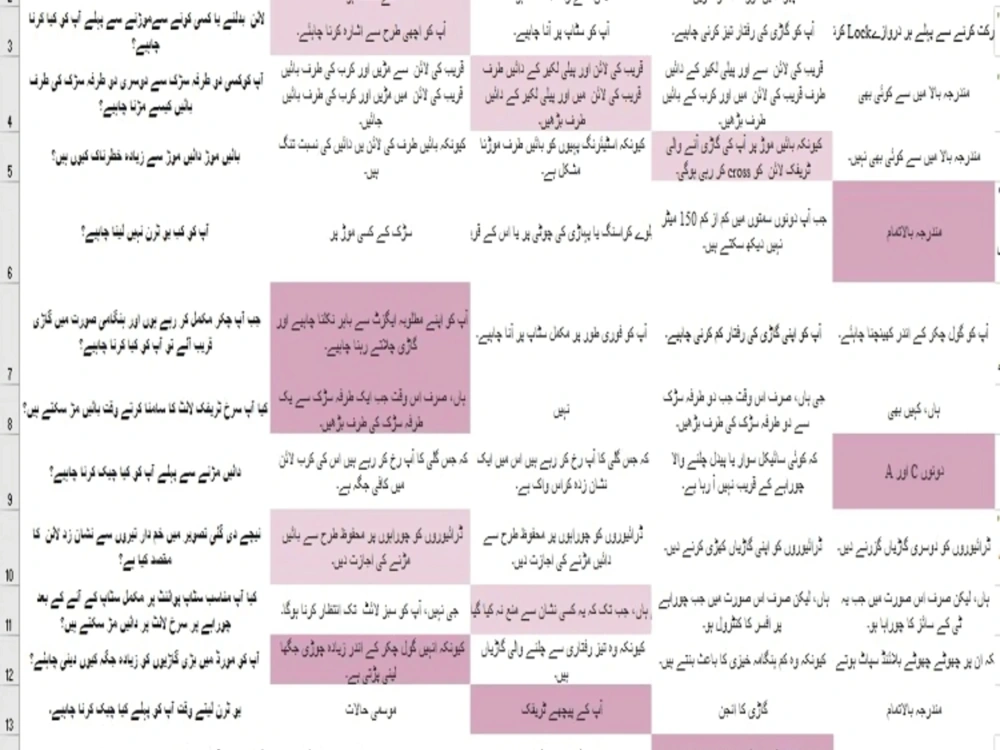 3
لائن بدلنے یا کسی کونے سے موڑنے سے پہلے آپ کو کیا کرنا
چاہیے؟
آپ کو اچھی طرح سے اشارہ کرنا چاہئے۔
آپ کو سٹاپ پر آنا چاہیے۔
آپ کو گاڑی کی رفتار تیز کرنی چاہیے۔
رکت کرنے سے پہلے ہر دروازےLock کرنا
4
آپ کوکسی دو طرفہ سڑک سے دوسری دو طرفہ سڑک کی طرف
بائیں کیسے مڑنا چاہیے؟
قریب کی لائن سے مڑیں اور کرب کی طرف بائیں
قریب کی لائن میں مڑیں اور کرب کی طرف بائیں
جائیں۔
قریب کی لائن اور پیلی لکیر کے دائیں طرف
قریب کی لائن میں اور پیلی لکیر کے دائیں
طرف بڑھیں۔
قریب کی لائن سے اور پیلی لکیر کے دائیں
طرف قریب کی لائن میں اور کرب کے بائیں
طرف بڑھیں۔
مندرجہ بالا میں سے کوئی بھی
5
بائیں موڑ دائیں موڑ سے زیادہ خطرناک کیوں ہیں؟
کیونکہ بائیں طرف کی لائن یں دائیں کی نسبت تنگ
ہیں۔
کیونکہ اسٹیئرنگ پہیوں کو بائیں طرف موڑنا
مشکل ہے۔
کیونکہ بائیں موڑ پر آپ کی گاڑی آنے والی
ٹریفک لائن کو cross کر رہی ہوگی۔
مندرجہ بالا میں سے کوئی بھی نہیں۔
6
آپ کو کب یو ٹرن نہیں لینا چاہیے؟
سڑک کے کسی موڑ پر
لوے کراسنگ یا پہاڑی کی چوٹی پر یا اس کے قر
جب آپ دونوں سمتوں میں کم از کم 150 میٹر
نہیں دیکھ سکتے ہیں۔
مندرجہ بالاتمام
7
جب آپ چکر مکمل کر رہے ہوں اور ہنگامی صورت میں گاڑی
قریب آئے تو آپ کو کیا کرنا چاہیے؟
آپ کو اپنے مطلوبہ ایگزٹ سے باہر نکلنا چاہیے اور
گاڑی چلاتے رہنا چاہیے۔
آپ کو فوری طور پر مکمل سٹاپ پر آنا چاہیے۔
آپ کو اپنی گاڑی کی رفتار کم کرنی چاہیے۔
آپ کو گول چکر کے اندر کھینچنا چاہئے۔
8
کیا آپ سرخ ٹریفک لائٹ کا سامنا کرتے وقت بائیں مڑ سکتے ہیں؟
ہاں، صرف اس وقت جب ایک طرفہ سڑک سے یک
طرفہ سڑک کی طرف بڑھیں۔
نہیں
جی ہاں، صرف اس وقت جب دو طرفہ سڑک
سے دو طرفہ سڑک کی طرف بڑھیں۔
ہاں، کہیں بھی
9
دائیں مڑنے سے پہلے آپ کو کیا چیک کرنا چاہیے؟
کہ جس گلی کا آپ رخ کر رہے ہیں اس کی کرب لائن
میں کافی جگہ ہے۔
کہ جس گلی کا آپ رخ کر رہے ہیں اس میں ایک
نشان زدہ کراس واک ہے۔
کہ کوئی سائیکل سوار یا پیدل چلنے والا
چوراہے کے قریب نہیں آ رہا ہے۔
دونوں C اور A
10
نیچے دی گئی تصویر میں خم دار تیروں سے نشان زد لائن کا
مقصد کیا ہے؟
ڈرائیوروں کو چوراہوں پر محفوظ طرح سے بائیں
مڑنے کی اجازت دیں۔
ڈرائیوروں کو چوراہوں پر محفوظ طرح سے
دائیں مڑنے کی اجازت دیں۔
ڈرائیوروں کو اپنی گاڑیاں کھڑی کرنے دیں۔
ڈرائیوروں کو دوسری گاڑیاں گزرنے دیں۔
11
کیا آپ مناسب سٹاپ پوائنٹ پر مکمل سٹاپ کے آنے کے بعد
چوراہے پر سرخ لائٹ پر دائیں مڑ سکتے ہیں؟
جی نہیں، آپ کو سبز لائٹ تک انتظار کرنا ہوگا۔
ہاں، جب تک کہ یہ کسی نشان سے منع نہ کیا گیا
ہاں، لیکن صرف اس صورت میں جب چوراہے
پر افسر کا کنٹرول ہو۔
ہاں، لیکن صرف اس صورت میں جب یہ
ٹی کے سائز کا چوراہا ہو۔
12
آپ کو مورڈ میں بڑی گاڑیوں کو زیادہ جگہ کیوں دینی چاہئے؟
کیونکہ انہیں گول چکر کے اندر زیادہ چوڑی جگھا
لینی پڑتی ہے۔
کیونکہ وہ تیز رفتاری سے چلنے والی گاڑیاں
ہیں۔
کیونکہ وہ کم ہنگامہ خیزی کا باعث بنتے ہیں۔
کہ ان پر چھوٹے چھوٹے بلائنڈ سپاٹ ہوتے
13
یو ٹرن لیتے وقت آپ کو پہلے کیا چیک کرنا چاہیے۔
موسمی حالات
آپ کے پیچھے ٹریفک
گاڑی کا انجن
مندرجہ بالاتمام